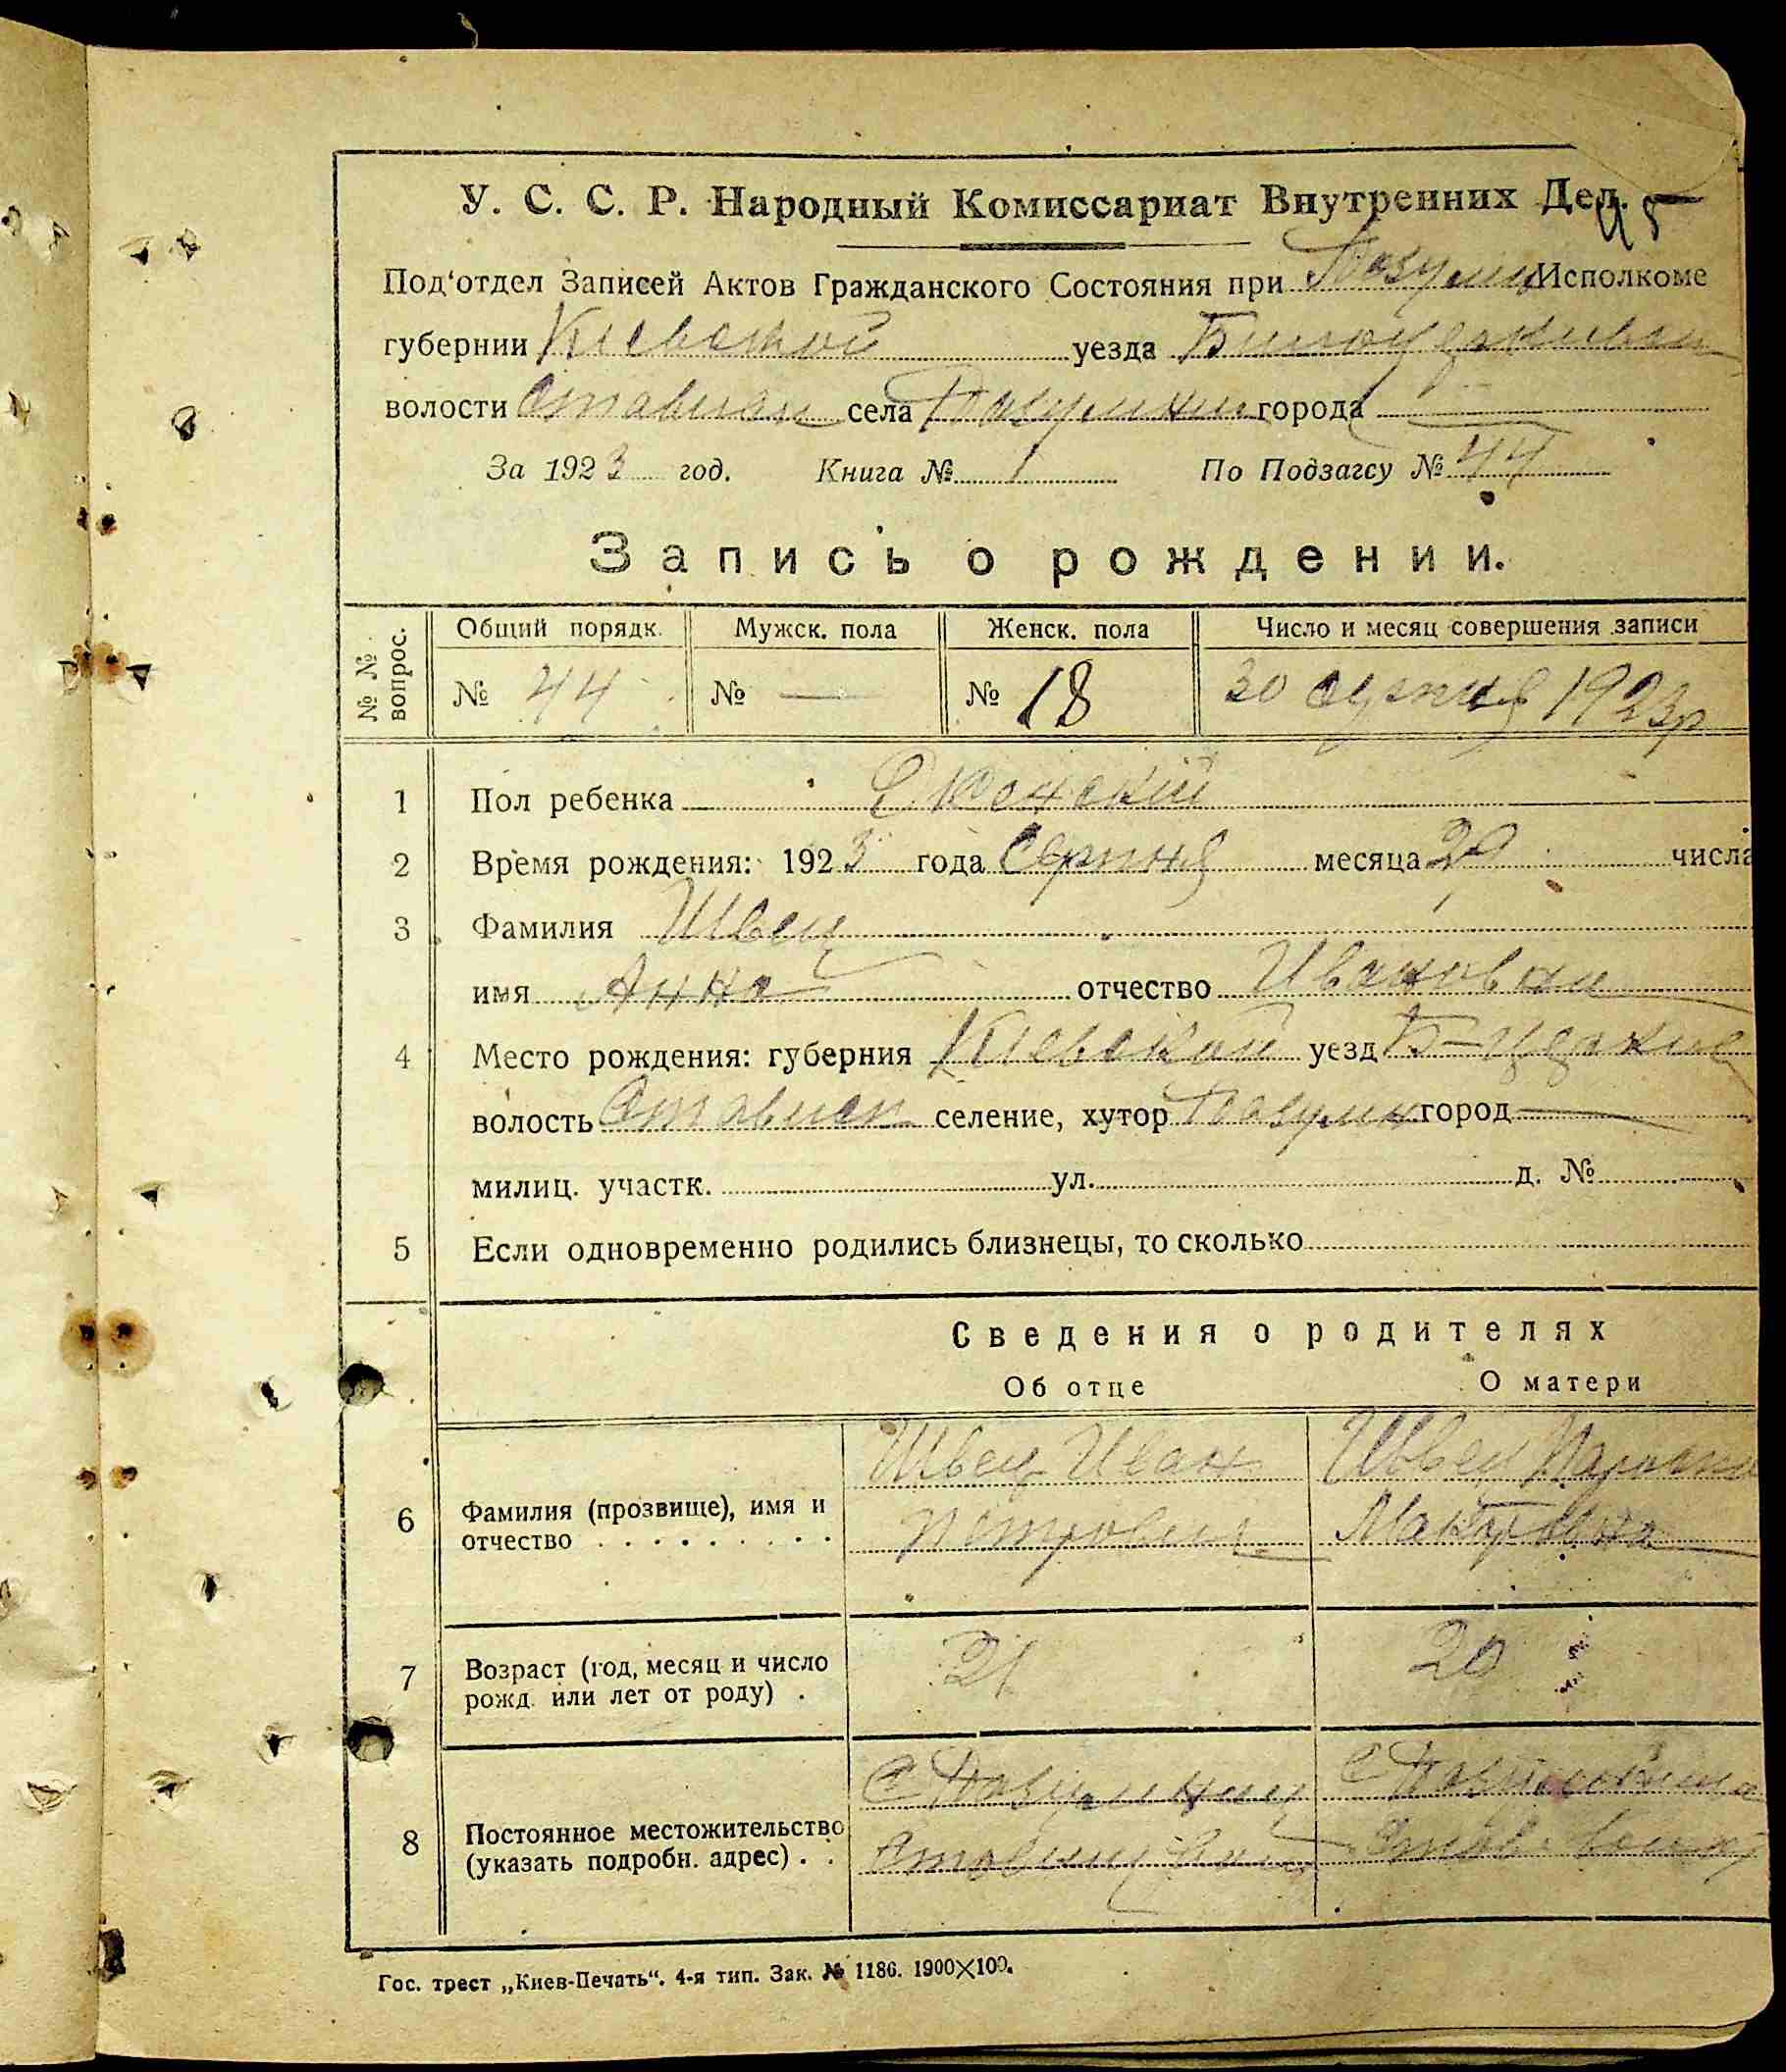 У. С. С. Р. Народный Комиссариат Внутренних Дел.
45
Под'отдел Записей Актов Гражданского Состояния при Исполкоме
губернии Киевской уезда Билоцеркивськ
волости Ставищан села города —
За 1923 год. Книга № 1 По Подзагсу № 44
Запись о рождении.
№№ вопрос. Общий порядк. Мужск. пола Женск. пола Число и месяц совершения записи
№ 44 № — № 18 30 серпня 1923р
1 Пол ребенка Женский
2 Время рождения: 1923 года Серпня месяца 29 числа
3 Фамилия Швец
имя Анна отчество Ивановна
4 Место рождения: губерния Киевской уезд Б-Церкив
волость селение, хутор город —
милиц. участк. ул. д. №
5 Если одновременно родились близнецы, то сколько
Сведения о родителях
Об отце О матери
6 Фамилия (прозвище), имя и отчество
Швец Иван Швец
Петрович
7 Возраст (год, месяц и число рожд. или лет от роду) . 21 20
8 Постоянное местожительство (указать подробн. адрес) . .
С С
Гос. трест „Киев-Печать“. 4-я тип. Зак. № 1186. 1900×100.